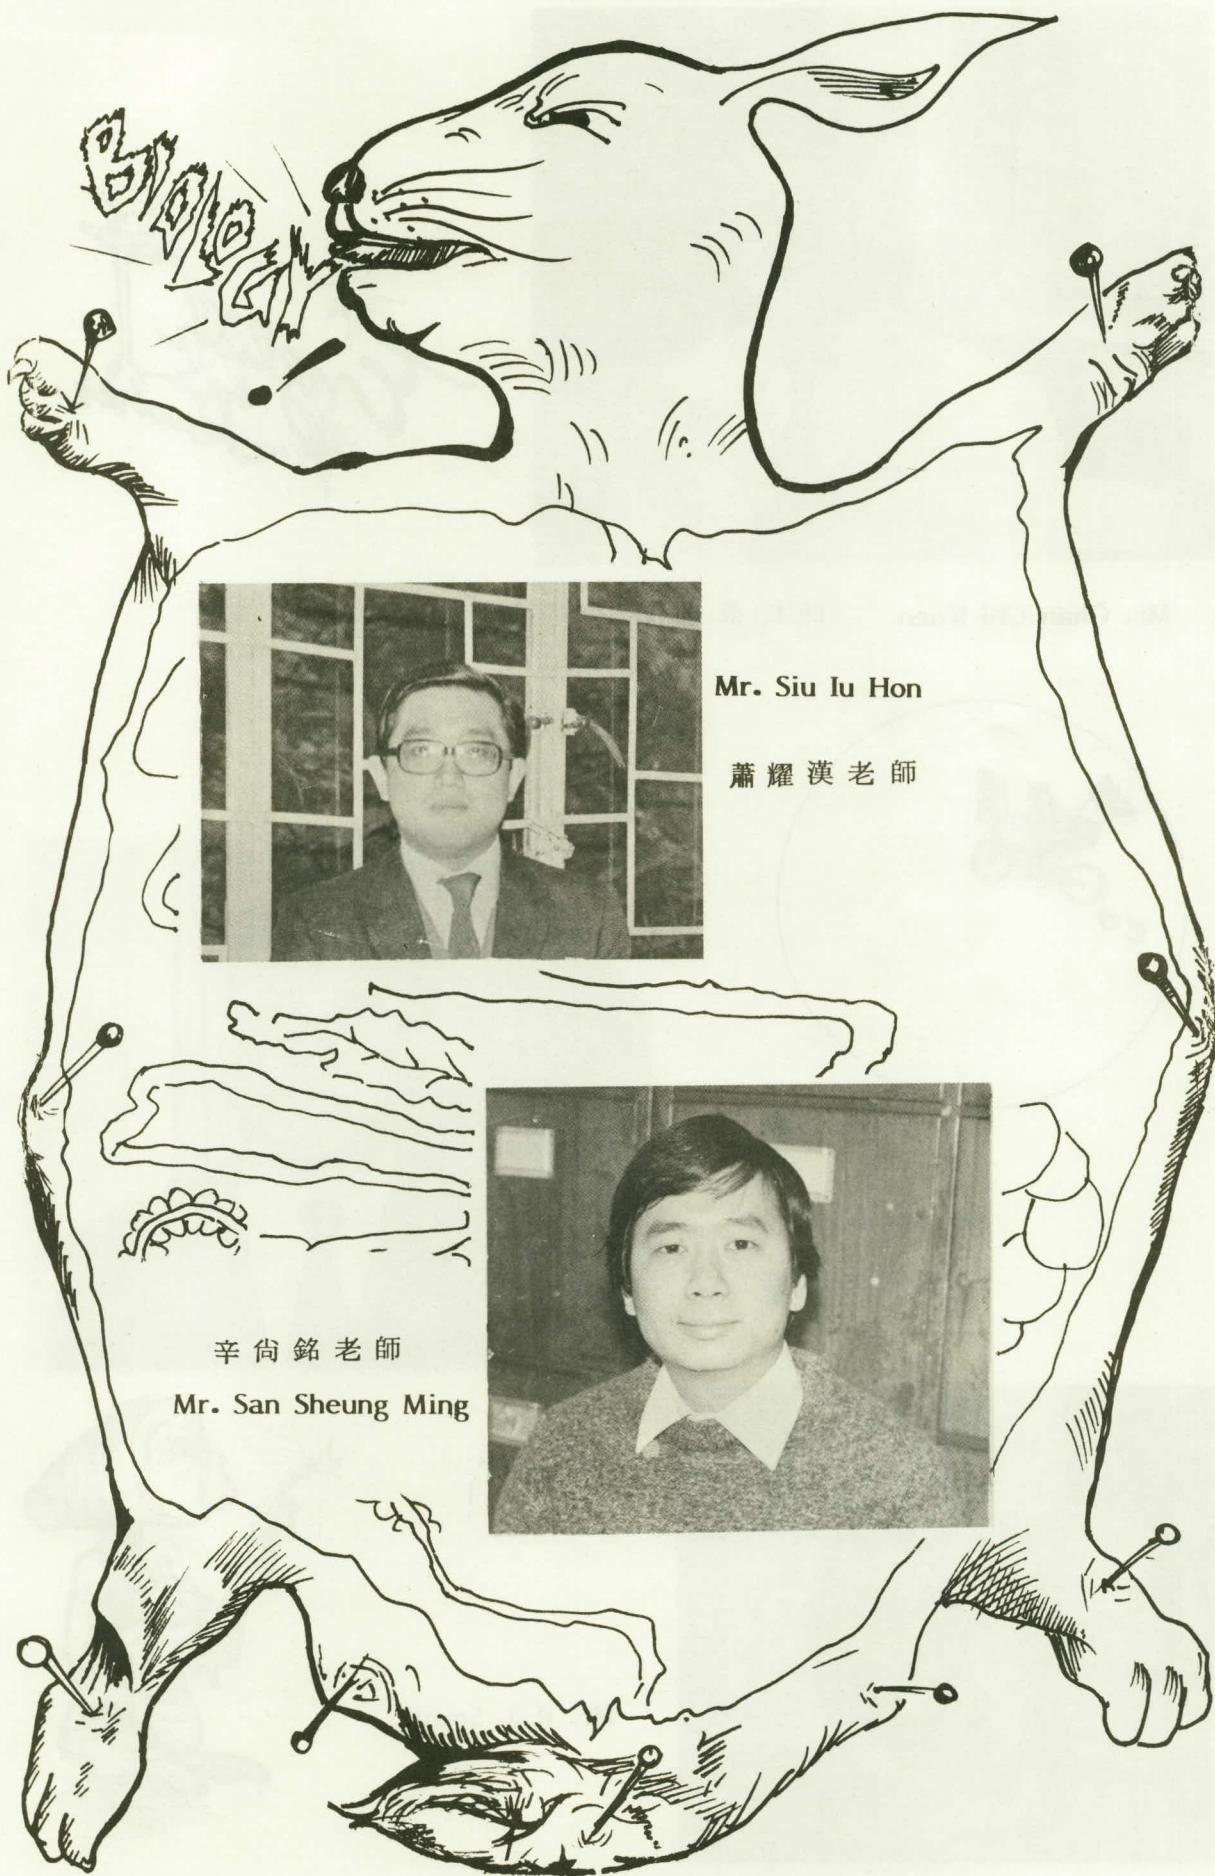 BIOLOGY!
Mr. Siu Iu Hon
蕭耀漢老師
辛尙銘老師
Mr. San Sheung Ming